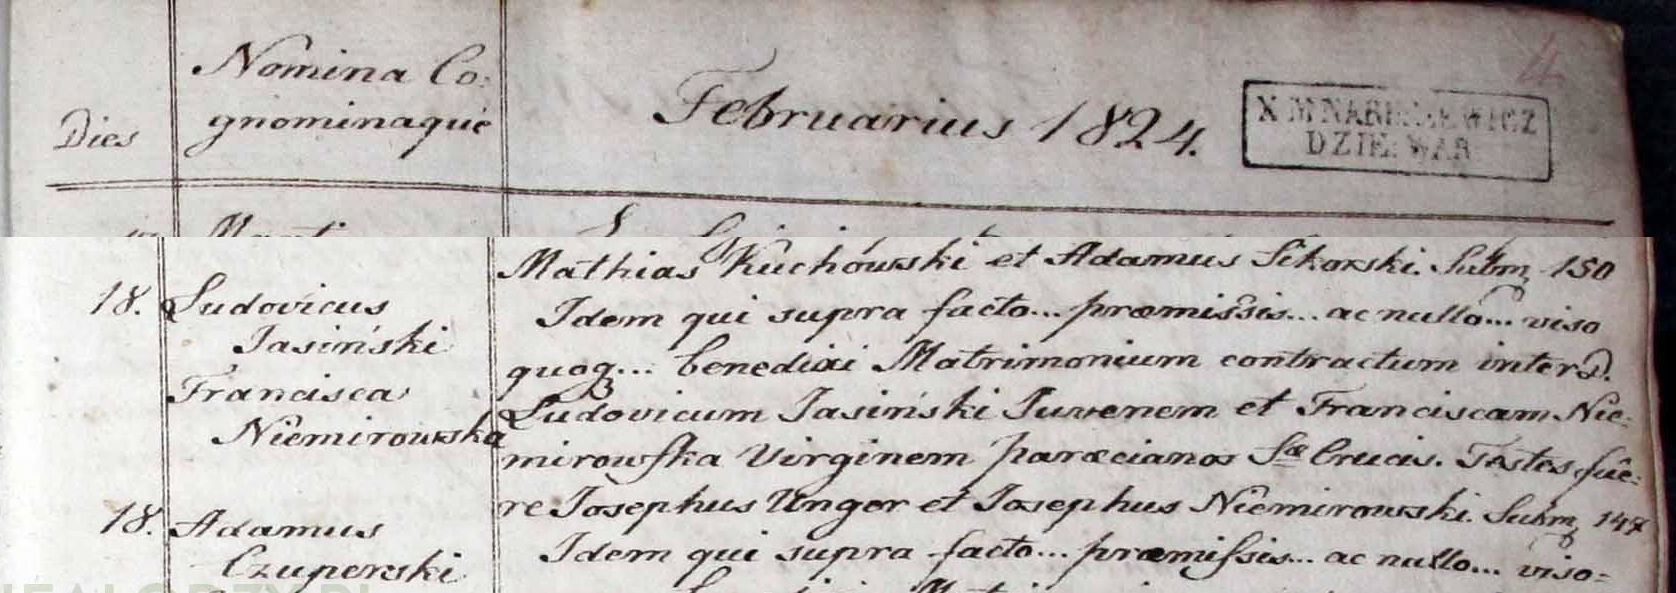 Dies
Nomina Co:
gnominaque
Februarius 1824.
4
DZIE. WAR
Mathias Kuchówski et Adamus Sikorski. Subm 150
18. Ludovicus
Jasiński
Francisca
Niemirowska
Idem qui supra facto... præmissis... ac nullo... viso
quoq... benedixi Matrimonium contractum inter D.
Ludovicum Jasiński Juvenem et Franciscam Nie:
mirowska Virginem paræcianos Sæ Crucis. Testes fue:
re Josephus Unger et Josephus Niemirowski. Subm 147
18. Adamus
Czuperski
Idem qui supra facto... præmissis... ac nullo... viso=